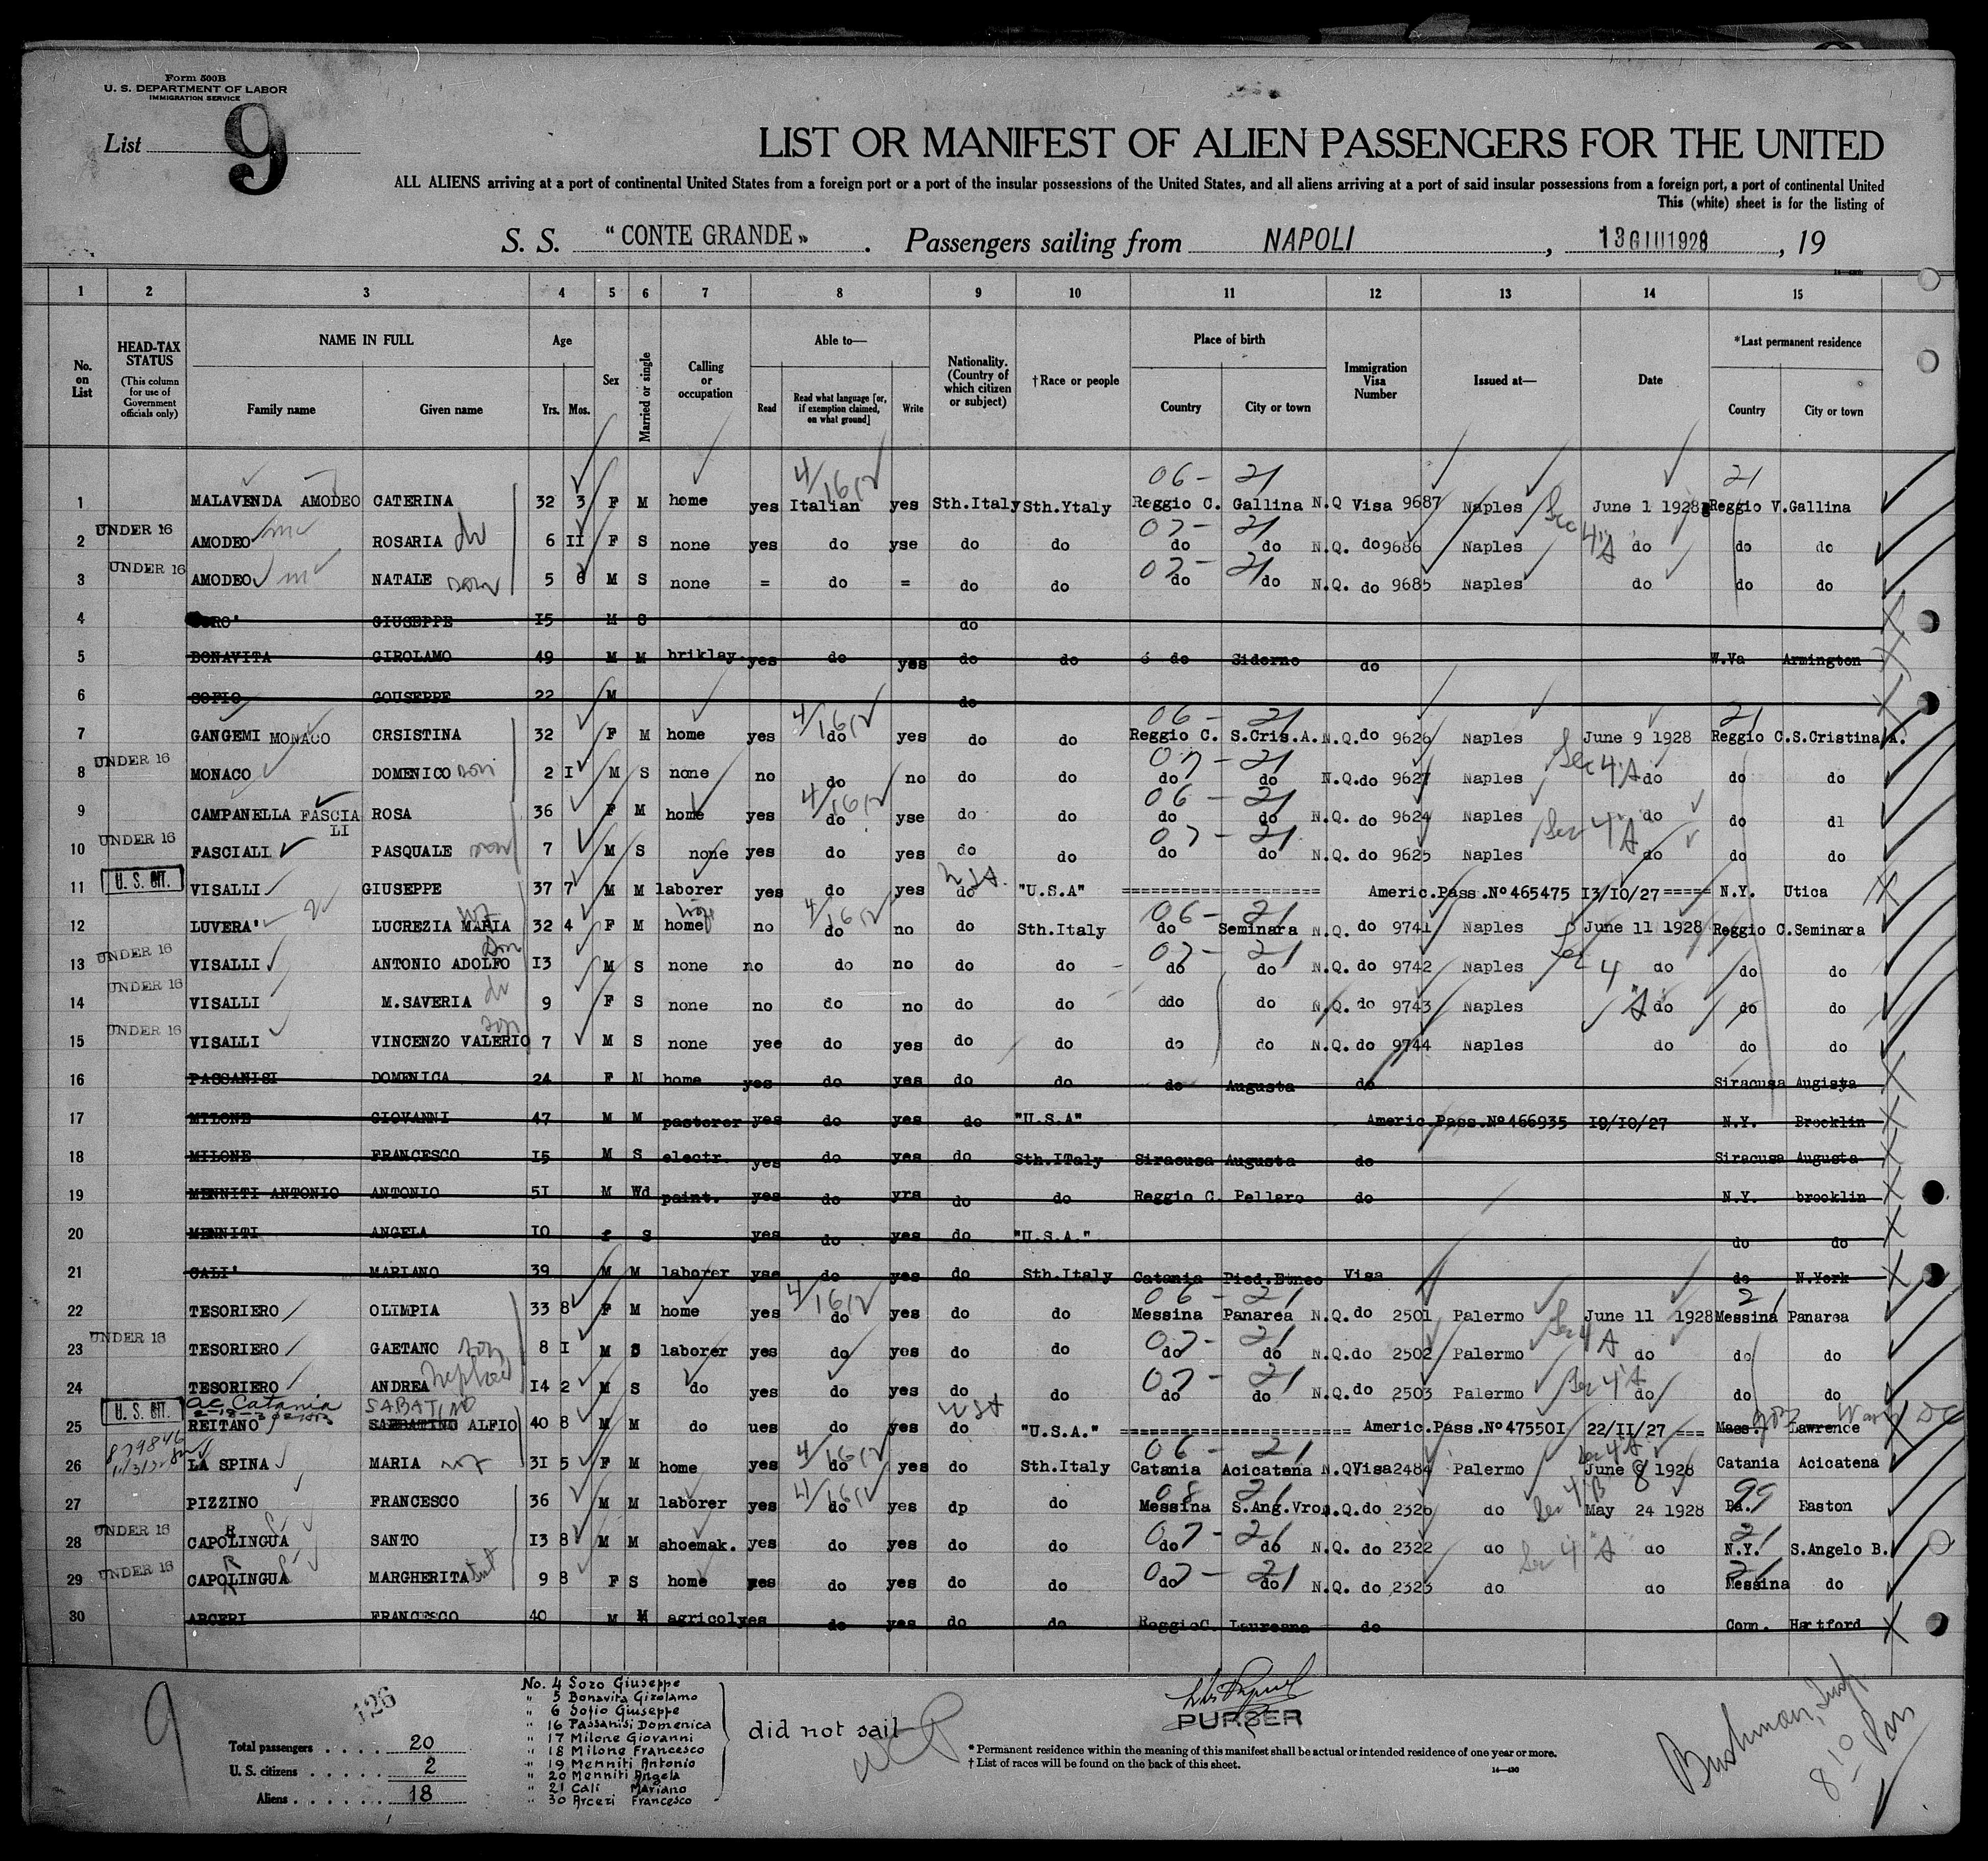 Form 500B
U. S. DEPARTMENT OF LABOR
IMMIGRATION SERVICE
List 9
LIST OR MANIFEST OF ALIEN PASSENGERS FOR THE UNITED
ALL ALIENS arriving at a port of continental United States from a foreign port or a port of the insular possessions of the United States, and all aliens arriving at a port of said insular possessions from a foreign port, a port of continental United
This (white) sheet is for the listing of
S. S. "CONTE GRANDE" . Passengers sailing from NAPOLI , 13 GIU 1928 , 19
1 2 3 4 5 6 7 8 9 10 11 12 13 14 15
No. on List HEAD-TAX STATUS (This column for use of Government officials only) NAME IN FULL Family name Given name Age Yrs. Mos. Sex Married or single Calling or occupation Able to— Read Read what language [or, if exemption claimed, on what ground] Write Nationality. (Country of which citizen or subject) †Race or people Place of birth Country City or town Immigration Visa Number Issued at— Date *Last permanent residence Country City or town
4/16/12 06 - 21 21
1 MALAVENDA AMODEO CATERINA 32 3 F M home yes Italian yes Sth.Italy Sth.Ytaly Reggio C. Gallina N.Q Visa 9687 Naples June 1 1928 Reggio V.Gallina
07 - 21 Sec 4 A
2 UNDER 16 AMODEO ROSARIA 6 II F S none yes do yse do do do do N.Q. do 9686 Naples do do do
07 - 21
3 UNDER 16 AMODEO NATALE son 5 6 M S none = do = do do do do N.Q. do 9685 Naples do do do
4 GIUSEPPE I5 M S do
5 BONAVITA GIROLAMO 49 M M briklay. yes do yes do do do Siderno do W.Va Armington
6 SOFIO GOUSEPPE 22 M do
4/16/12 06 - 21 21
7 GANGEMI MONACO CRSISTINA 32 F M home yes do yes do do Reggio C. S.Cris.A. N.Q.do 9626 Naples June 9 1928 Reggio C.S.Cristina A.
07 - 21 Sec 4 A
8 UNDER 16 MONACO DOMENICO son 2 I M S none no do no do do do do N.Q.do 9627 Naples do do do
4/16/12 06 - 21
9 CAMPANELLA FASCIALI ROSA 36 F M home yes do yse do do do do N.Q. do 9624 Naples do do dl
07 - 21 Sec 4 A
10 UNDER 16 FASCIALI PASQUALE son 7 M S none yes do yes do do do do N.Q. do 9625 Naples do do do
11 U. S. CIT. VISALLI GIUSEPPE 37 7 M M laborer yes do yes do "U.S.A" ==================== Americ.Pass.Nº465475 I3/IO/27 ===== N.Y. Utica
4/16/12 06 - 21
12 LUVERA' LUCREZIA MARIA 32 4 F M home no do no do Sth.Italy do Seminara N.Q. do 9741 Naples June 11 1928 Reggio C.Seminara
07 - 21
13 UNDER 16 VISALLI ANTONIO ADOLFO son I3 M S none no do no do do do do N.Q. do 9742 Naples Sec 4 do do do
14 UNDER 16 VISALLI M.SAVERIA 9 F S none no do no do do ddo do N.Q. do 9743 Naples "A" do do do
15 UNDER 16 VISALLI VINCENZO VALERIO son 7 M S none yee do yes do do do do N.Q. do 9744 Naples do do do
16 PASSANISI DOMENICA 24 F M home yes do yes do do do Augusta do Siracusa Augista
17 MILONE GIOVANNI 47 M M pasterer yes do yes do "U.S.A" Americ.Pass.Nº466935 I9/IO/27 N.Y. Brooklin
18 MILONE FRANCESCO I5 M S electr. yes do yes do Sth.ITaly Siracusa Augusta do Siracusa Augusta
19 MENNITI ANTONIO ANTONIO 5I M Wd paint. yes do yrs do do Reggio C. Pellaro do N.Y. brooklin
20 MENNITI ANGELA IO f S yes do yes do "U.S.A." do do
21 CALI' MARIANO 39 M M laborer yse do yes do Sth.Italy Catania Pied.Etneo Visa do N.York
4/16/12 06 - 21 21
22 TESORIERO OLIMPIA 33 8 F M home yes do yes do do Messina Panarea N.Q. do 2501 Palermo June 11 1928 Messina Panarea
07 - 21 Sec 4 A
23 UNDER 16 TESORIERO GAETANO son 8 I M S laborer yes do yes do do do do N.Q.do 2502 Palermo do do do
07 - 21 Sec 4 A
24 TESORIERO ANDREA Nephew I4 2 M S do yes do yes do do do do N.Q. do 2503 Palermo do do do
ac Catania SABATINO
25 U. S. CIT. REITANO SABBATINO ALFIO 40 8 M M do ues do yes do "U.S.A." ====================== Americ.Pass.Nº47550I 22/II/27 === Mass. Lawrence
4/16/12 06 - 21 Sec 4 A
26 LA SPINA MARIA 3I 5 F M home yes do yes do Sth.Italy Catania Acicatena N.QVisa2484 Palermo June 8 1928 Catania Acicatena
4/16/12 08 21 Sec 4 B 99
27 PIZZINO FRANCESCO 36 M M laborer yes do yes dp do Messina S.Ang.Vro. N.Q.do 2326 do May 24 1928 Pa. Easton
07 - 21 21
28 UNDER 16 CAPOLINGUA SANTO I3 8 M M shoemak. yes do yes do do do do N.Q. do 2322 do Sec 4 "A" do N.Y. S.Angelo B.
07 - 21 21
29 UNDER 16 CAPOLINGUA MARGHERITA 9 8 F S home yes do yes do do do do N.Q. do 2323 do do Messina do
30 ARCERI FRANCESCO 40 M M agricol yes do yes do do ReggioC. Laureana do Conn. Hartford
9
126
Total passengers . . . . 20
U. S. citizens . . . . . 2
Aliens . . . . . . 18
No. 4 Soro Giuseppe
" 5 Bonavita Girolamo
" 6 Sofio Giuseppe
" 16 Passanisi Domenica
" 17 Milone Giovanni
" 18 Milone Francesco
" 19 Menniti Antonio
" 20 Menniti Angela
" 21 Cali Mariano
" 30 Arceri Francesco
did not sail
PURSER
* Permanent residence within the meaning of this manifest shall be actual or intended residence of one year or more.
† List of races will be found on the back of this sheet.
Bushman, Insp